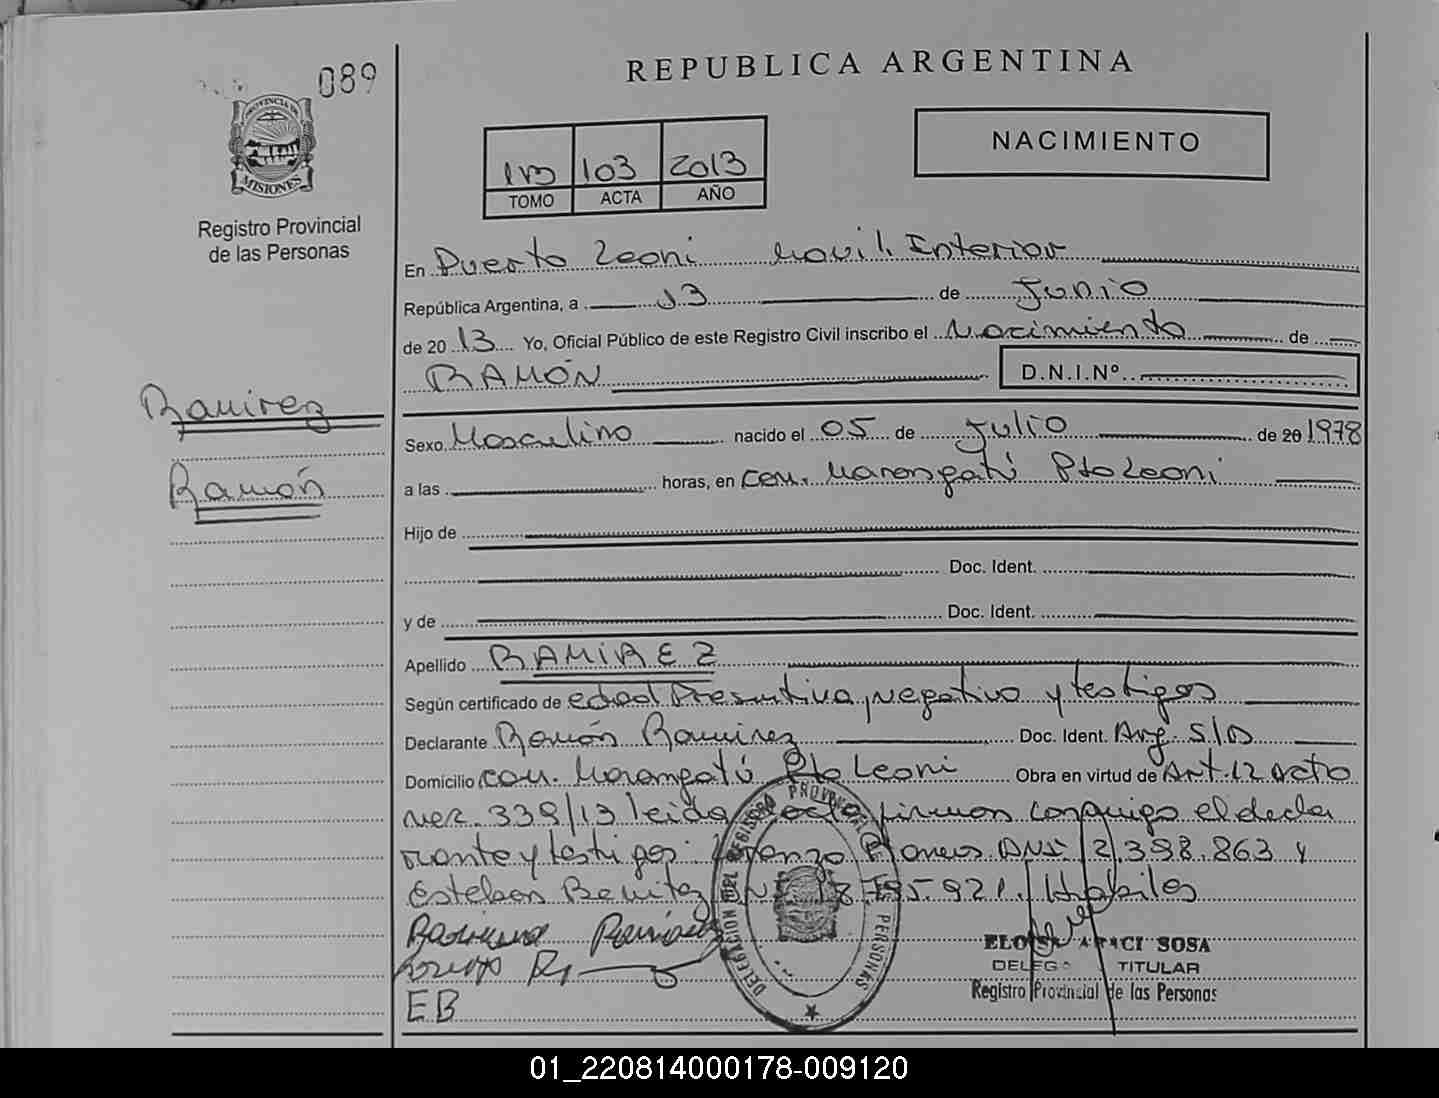 089
PROVINCIA DE
MISIONES
Registro Provincial
de las Personas
Ramirez
Ramón
REPUBLICA ARGENTINA
NACIMIENTO
103 2013
TOMO ACTA AÑO
En Puerto Leoni Movil Interior
República Argentina, a 13 de Junio
de 20 13 Yo, Oficial Público de este Registro Civil inscribo el Nacimiento de
RAMÓN D.N.I.Nº
Sexo Masculino nacido el 05 de Julio de 20 1978
a las horas, en com. Marangatú Pto Leoni
Hijo de
Doc. Ident.
y de Doc. Ident.
Apellido RAMIREZ
Según certificado de edad Presuntiva, negativo y testigos
Declarante Ramón Ramirez Doc. Ident. Arg. S/D
Domicilio com. Marangatú Pto Leoni Obra en virtud de Art. 12 Dcto
339/13 leida acta firman conmigo el decla
rante y testigos: Lorenzo DNI 12.398.863 y
Esteban Benitez DNI 18.795.921. Habiles
EB
DELEGACION DEL REGISTRO PROVINCIAL DE LAS PERSONAS
SOSA
TITULAR
Registro Provincial de las Personas
01_220814000178-009120